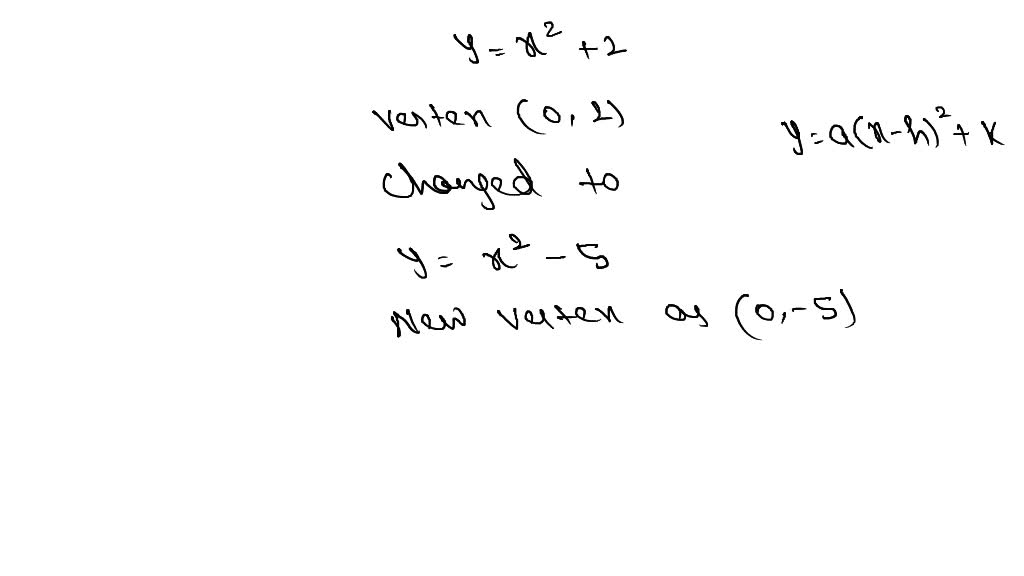 y = x² + 2
vertex (0, 2)
y = a(x-h)² + k
changed to
y = x² - 5
New vertex as (0, -5)